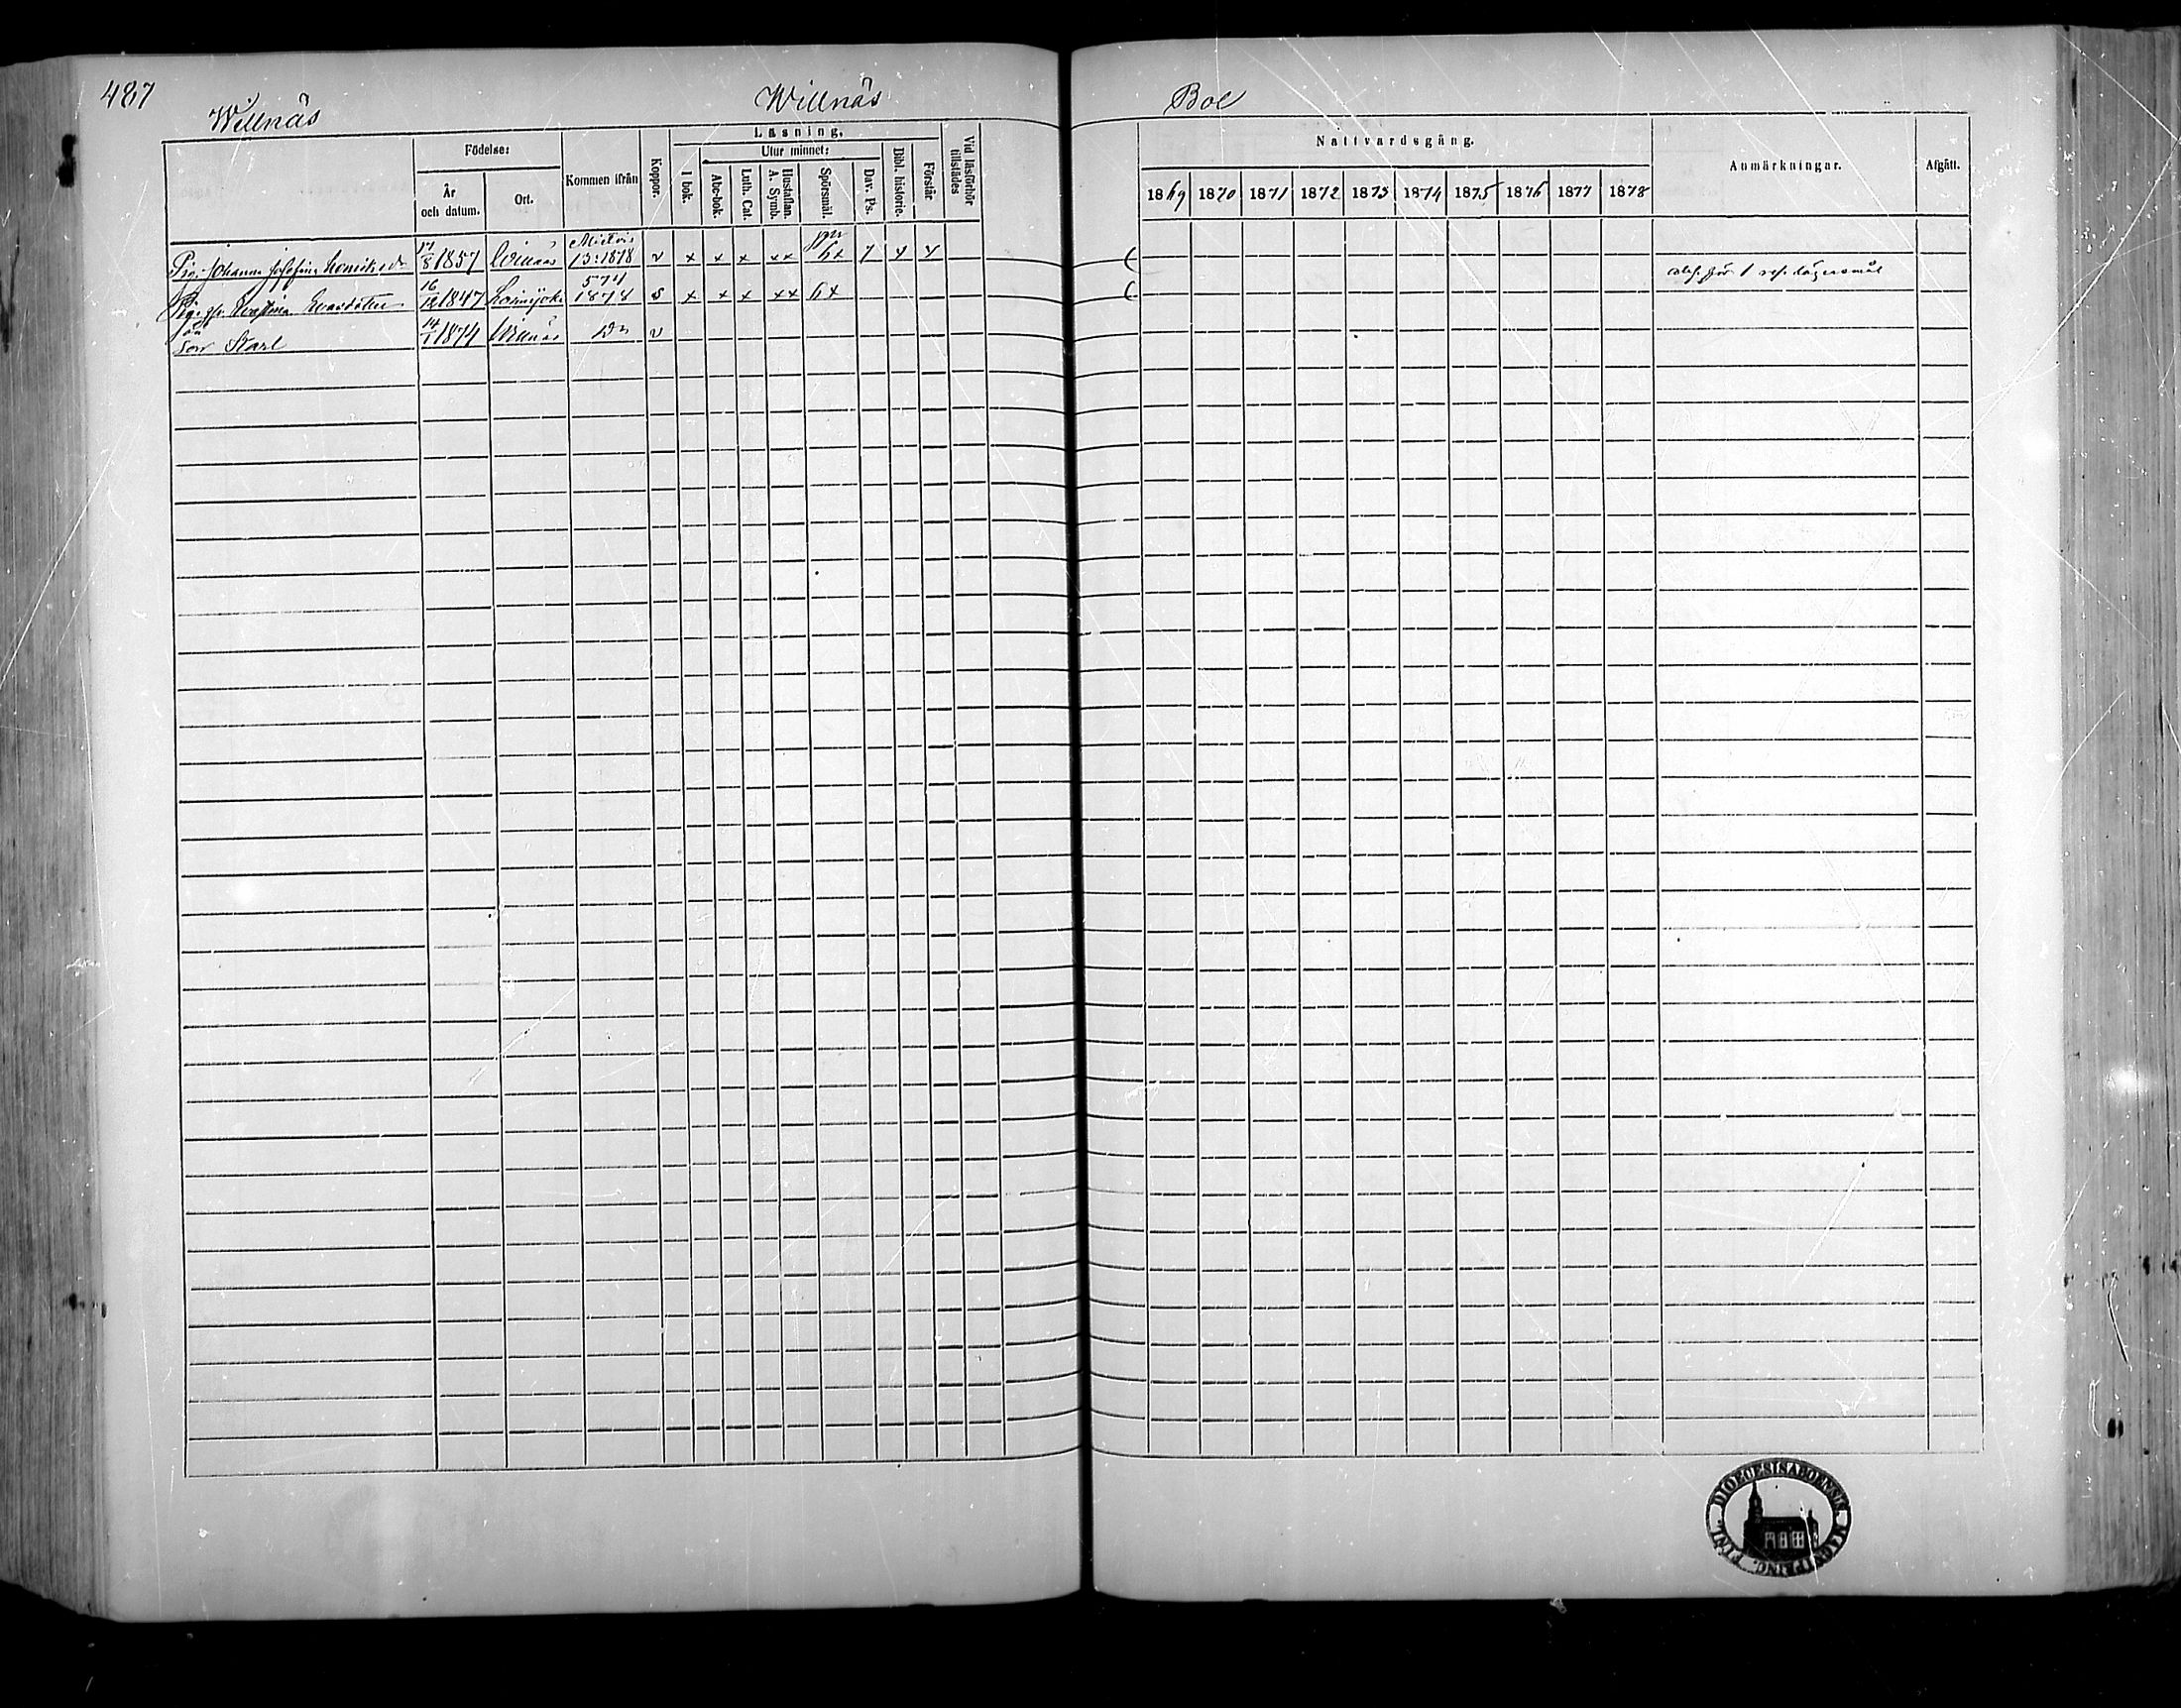 487
Willnäs
Willnäs
Boe
Födelse:
År och datum.
Ort.
Kommen ifrån
Koppor.
Läsning.
I bok.
Utur minnet:
Abc-bok.
Luth. Cat.
Hustaflan. A. Symb.
Spörsmål.
Dav. Ps.
Bibl. historie.
Förstår
Vid läsförhör tillstädes
Nattvardsgång.
1869 1870 1871 1872 1873 1874 1875 1876 1877 1878
Anmärkningar.
Afgått.
Pig. Johanna Josefina 17/8 1857 Willnäs Mietois 13: 1878 v x x x xx 6x 7 4 4
Pig. Serafina 1847 Loimijoki 574 1878 s x x x xx 6x
för 1 lägersmål
Son Karl 14/1 1874 Willnäs Do v
DIOECESIS ABOENSIS MAGNI PRINC. FINL.